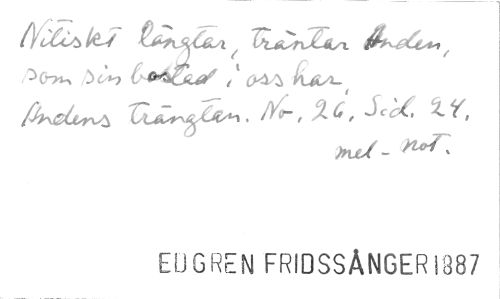 Nitiskt längtar, tråntar Anden,
som sin bostad i oss har,
Andens trängtan. No. 26. Sid. 24.
mel - not.
EDGREN FRIDSSÅNGER 1887